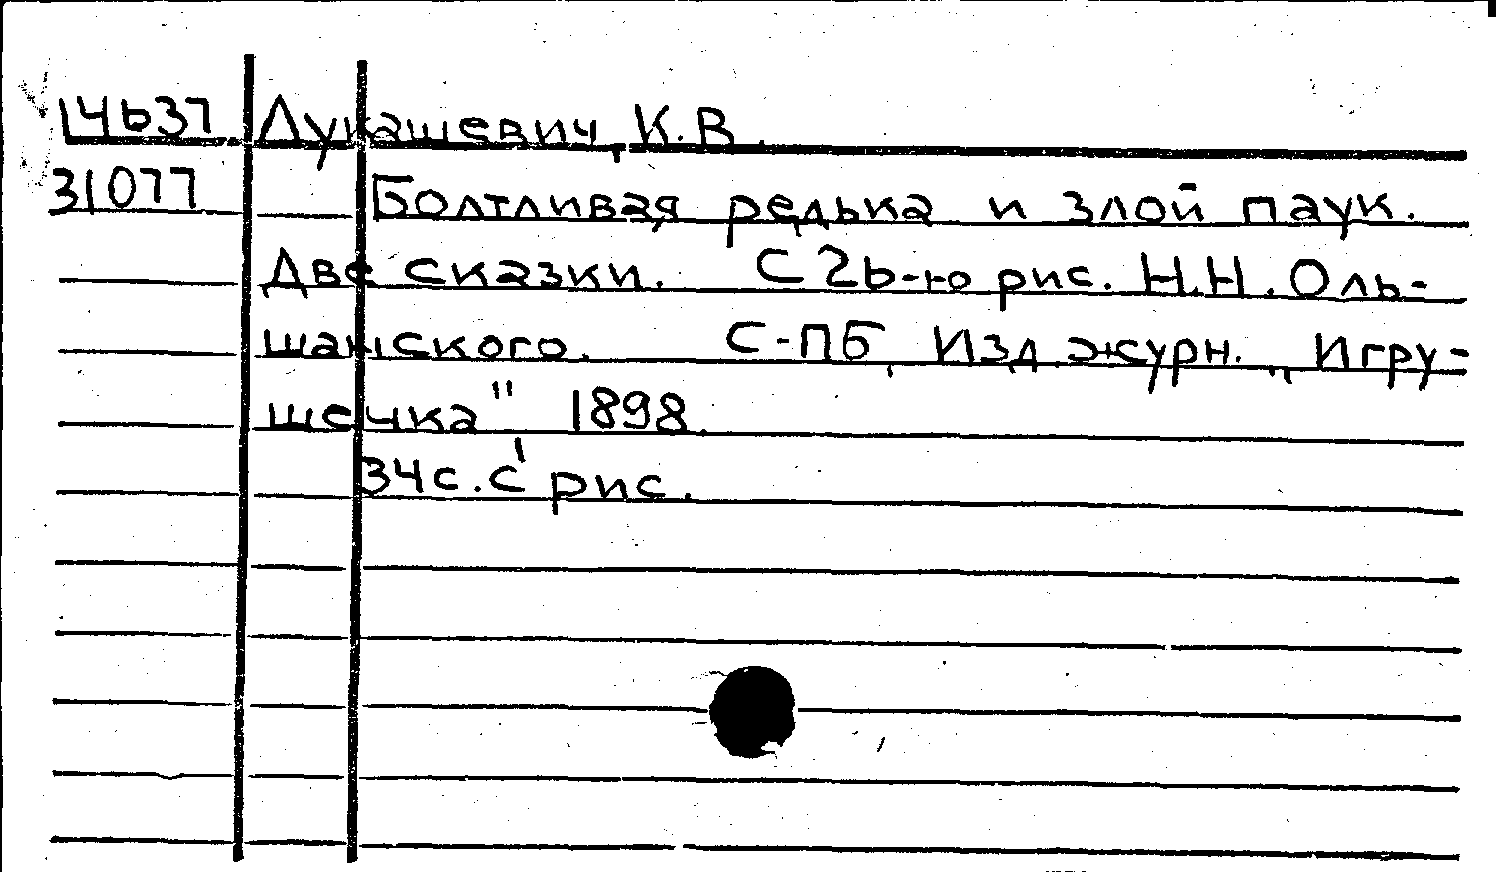 14637 Лукашевич, К.В.
31077 Болтливая редька и злой паук.
Две сказки. С 26-ю рис. Н.Н. Оль-
шанского. С-ПБ, Изд. журн. „Игру-
шечка" 1898.
34с. с рис.